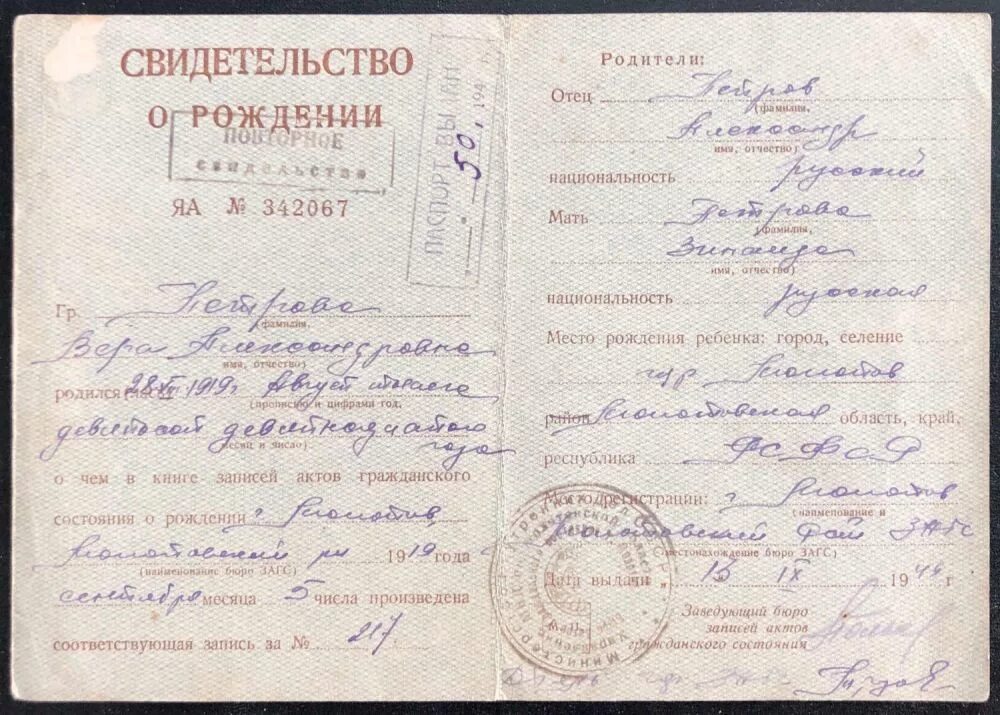 СВИДЕТЕЛЬСТВО
О РОЖДЕНИИ
ПОВТОРНОЕ
свидельство
ЯА № 342067
ПАСПОРТ ВЫДАН
50, 194
Гр. Петрова
(фамилия,
Вера Александровна
имя, отчество)
родился 28/VIII 1919 г Август
(прописью и цифрами год,
девятьсот девятнадцатого
месяц и число)
года
о чем в книге записей актов гражданского
состояния о рождении г. Молотов,
Молотовский 1919 года
(наименование бюро ЗАГС)
сентября месяца 5 числа произведена
соответствующая запись за № 217
Родители:
Отец Петров
(фамилия,
Александр
имя, отчество)
национальность русский
Мать Петрова
(фамилия,
Зинаида
имя, отчество)
национальность русская
Место рождения ребенка: город, селение
гор Молотов
район Молотовская область, край,
республика РСФСР
Место регистрации: г Молотов
(наименование и
Молотовский ЗАГС
местонахождение бюро ЗАГС)
Дата выдачи „ 13 " IX 194 г
Заведующий бюро
записей актов
гражданского состояния